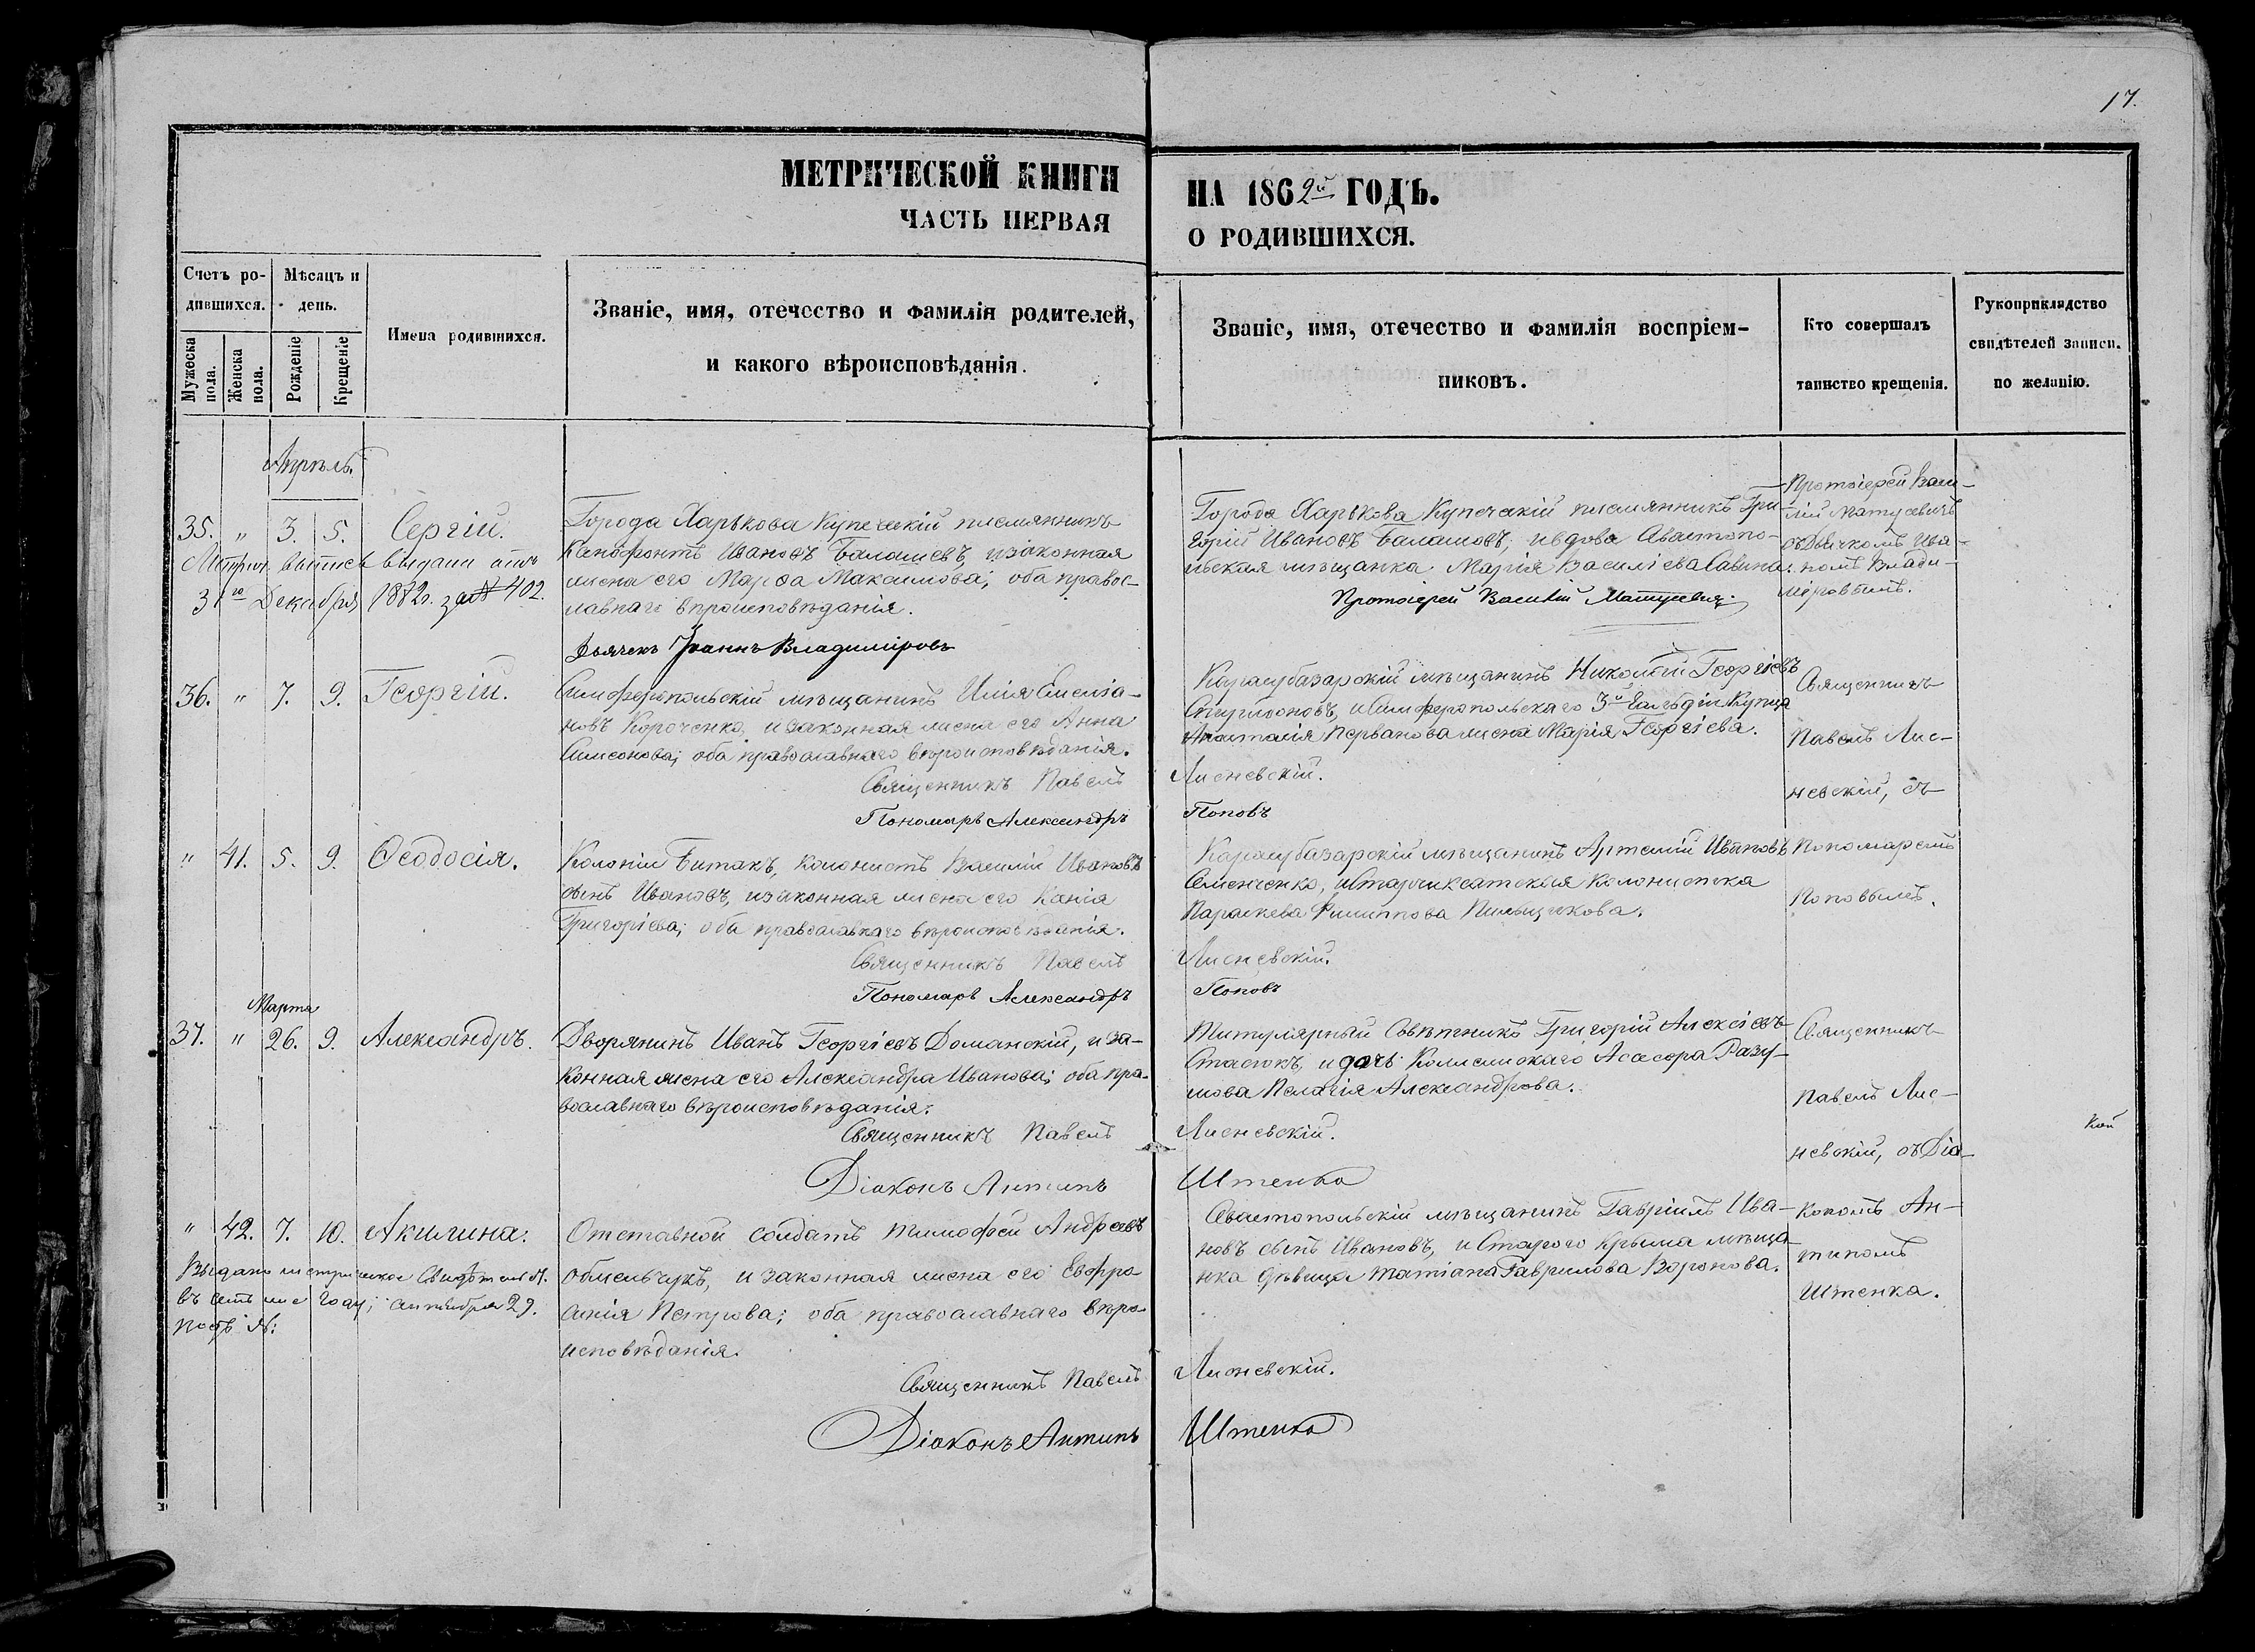 17.
МЕТРИЧЕСКОЙ КНИГИ
НА 1862й ГОДЪ.
ЧАСТЬ ПЕРВАЯ
О РОДИВШИХСЯ.
Счетъ ро-
дившихся.
Мужеска пола.
Женска пола.
Мѣсяцъ и
день.
Рожденіе
Крещеніе
Имена родившихся.
Званіе, имя, отечество и фамилія родителей,
и какого вѣроисповѣданія.
Званіе, имя, отечество и фамилія воспріем-
никовъ.
Кто совершалъ
таинство крещенія.
Рукоприкладство
свидѣтелей записи.
по желанію.
Апрѣль.
35. " 3. 5. Сергій.
Метрич. выпись выдана отъ
31го Декабря 1882г. за № 402.
Города Харькова Купеческій племянникъ
Ксенофонтъ Ивановъ Балашевъ, и законная
жена его Марѳа Максимова, оба правос-
лавнаго вѣроисповѣданія.
Дьячекъ Іоаннъ Владиміровъ
Города Харькова Купеческій племянникъ Гри-
горій Ивановъ Балашовъ, и вдова Авастопо-
льская мѣщанка Марія Василіева Савина.
Протоіерей Василій Матусевичъ
Протоіерей Васи-
лій Матусевичъ
съ Дьячкомъ Ива-
номъ Влади-
міровымъ.
36. " 7. 9. Георгій.
Симферопольскій мѣщанинъ Илія Емелія-
новъ Короченко, и законная жена его Анна
Симеонова; оба православнаго вѣроисповѣданія.
Священникъ Павелъ
Лисневскій.
Пономарь Александръ
Поповъ
Карасубазарскій мѣщанинъ Николай Георгіевъ
Спиридоновъ, и Симферопольскаго 3й Гильдіи Купца
Анастасія Перванова жена Марія Георгіева.
Священникъ
Павелъ Лис-
невскій, съ
" 41. 5. 9. Ѳеодосія.
Колоніи Битакъ, колонистъ Василій Ивановъ
сынъ Ивановъ, и законная жена его Ксенія
Григоріева; оба православнаго вѣроисповѣданія.
Священникъ Павелъ
Лисневскій.
Пономарь Александръ
Поповъ
Карасубазарскій мѣщанинъ Артемій Ивановъ
Семенченко, и колонистка
Параскева Филиппова Пильщикова.
Пономаремъ
Поповымъ.
Марта
37. " 26. 9. Александръ.
Дворянинъ Иванъ Георгіевъ Доманскій, и за-
конная жена его Александра Иванова; оба пра-
вославнаго вѣроисповѣданія.
Священникъ Павелъ
Лисневскій.
Діаконъ Антипъ
Штенко
Титулярный Совѣтникъ Григорій Алексіевъ
Стасюкъ, и дочь Колежскаго Асесора Разу-
мова Пелагія Александрова.
Священникъ
Павелъ Лис-
невскій, съ Діа-
Кой
" 42. 7. 10. Акилина.
Выдано метрическое Свидѣтельст.
въ семъ же году; Сентября 29.
подъ №:
Отставной солдатъ Тимофей Андреевъ
Обмельчукъ, и законная жена его Евфро-
синія Петрова; оба православнаго вѣро-
исповѣданія.
Священникъ Павелъ
Лисневскій.
Діаконъ Антипъ
Штенко
Севастопольскій мѣщанинъ Гавріилъ Ива-
новъ сынъ Ивановъ, и Старого Крыма мѣща-
нка дѣвица Татіана Гаврилова Воронова.
кономъ Ан-
типомъ
Штенка.